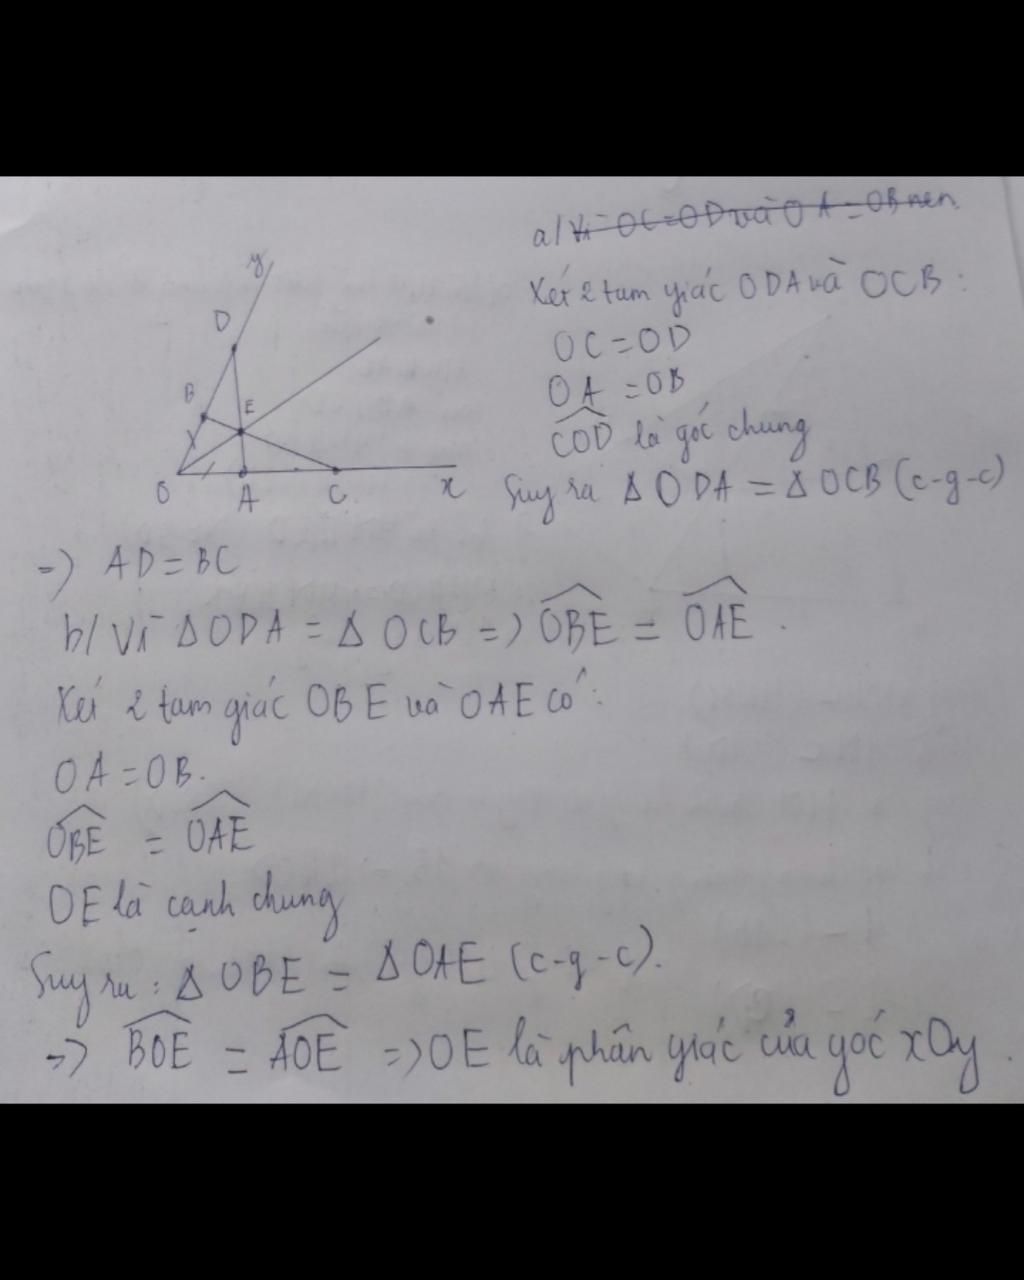 a/ Vì OC=OD và OA=OB nên
Xét 2 tam giác ODA và OCB:
OC=OD
OA=OB
\widehat{COD} là góc chung
Suy ra Δ ODA = Δ OCB (c-g-c)
y
D
B
E
O
A
C
x
=) AD=BC
b/ Vì Δ ODA = Δ OCB =) \widehat{OBE} = \widehat{OAE}.
Xét 2 tam giác OBE và OAE có:
OA=OB.
\widehat{OBE} = \widehat{OAE}
OE là cạnh chung
Suy ra: Δ OBE = Δ OAE (c-g-c).
=) \widehat{BOE} = \widehat{AOE} =) OE là phân giác của góc xOy.